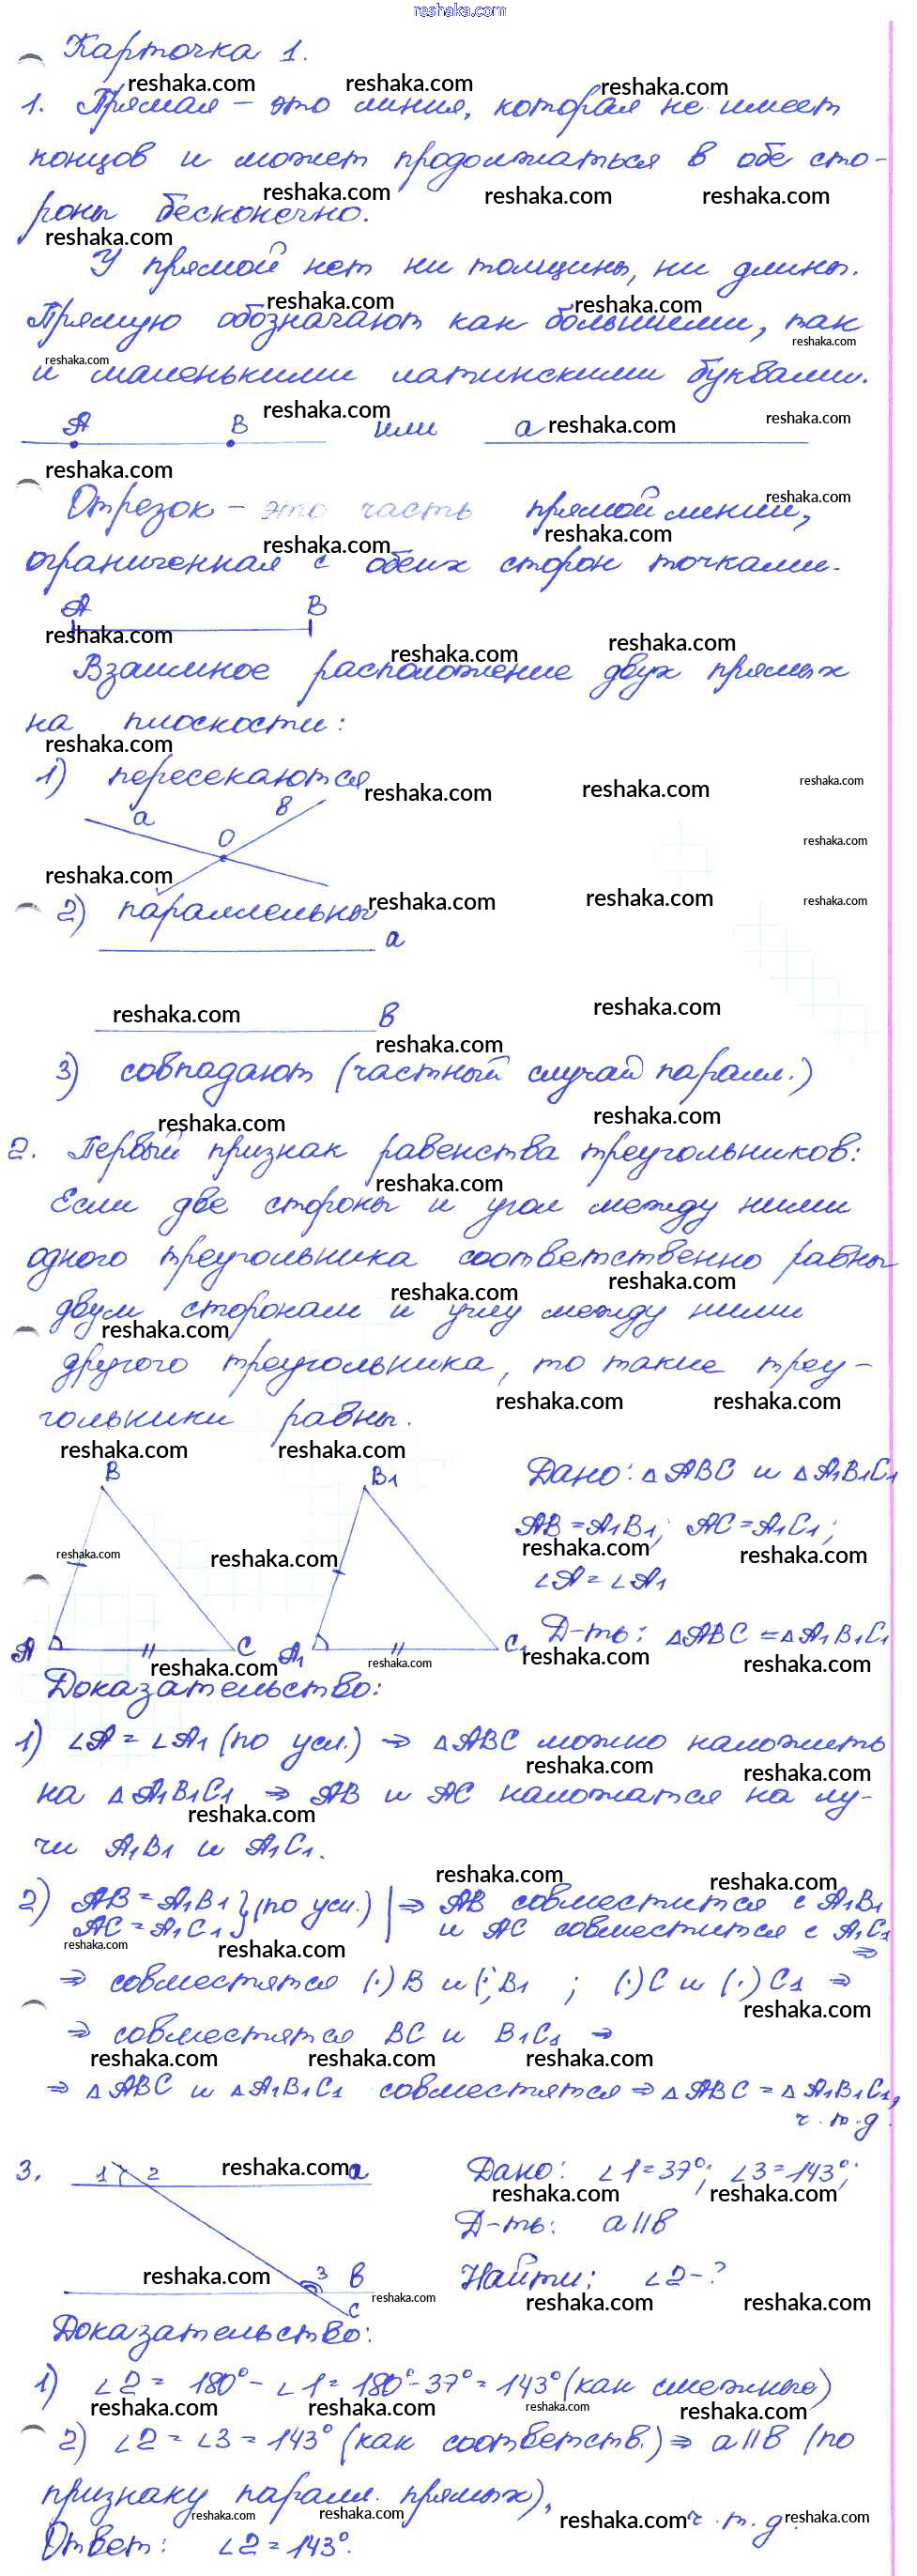 reshaka.com
Карточка 1.
1. Прямая – это линия, которая не имеет
концов и может продолжаться в обе сто-
роны бесконечно.
У прямой нет ни толщины, ни длины.
Прямую обозначают как большими, так
и маленькими латинскими буквами.
A B или a
Отрезок – это часть прямой линии,
ограниченная с обеих сторон точками.
A B
Взаимное расположение двух прямых
на плоскости:
1) пересекаются
a O в
2) параллельны
a
в
3) совпадают (частный случай паралл.)
2. Первый признак равенства треугольников:
Если две стороны и угол между ними
одного треугольника соответственно равны
двум сторонам и углу между ними
другого треугольника, то такие треу-
гольники равны.
B B1 Дано: △ABC и △A1B1C1
AB = A1B1; AC = A1C1;
∠A = ∠A1
A C A1 C1 Д-ть: △ABC = △A1B1C1
Доказательство:
1) ∠A = ∠A1 (по усл.) ⇒ △ABC можно наложить
на △A1B1C1 ⇒ AB и AC наложатся на лу-
чи A1B1 и A1C1.
2) AB = A1B1 } (по усл.) | ⇒ AB совместится с A1B1
AC = A1C1 и AC совместится с A1C1 ⇒
⇒ совместятся (·) B и (·) B1 ; (·) C и (·) C1 ⇒
⇒ совместятся BC и B1C1 ⇒
⇒ △ABC и △A1B1C1 совместятся ⇒ △ABC = △A1B1C1,
ч.т.д.
3. 1 2 a Дано: ∠1 = 37°; ∠3 = 143°;
Д-ть: a || в
3 в Найти: ∠2 - ?
c
Доказательство:
1) ∠2 = 180° - ∠1 = 180° - 37° = 143° (как смежные)
2) ∠2 = ∠3 = 143° (как соответств.) ⇒ a || в (по
признаку паралл. прямых),
ч.т.д.
Ответ: ∠2 = 143°.